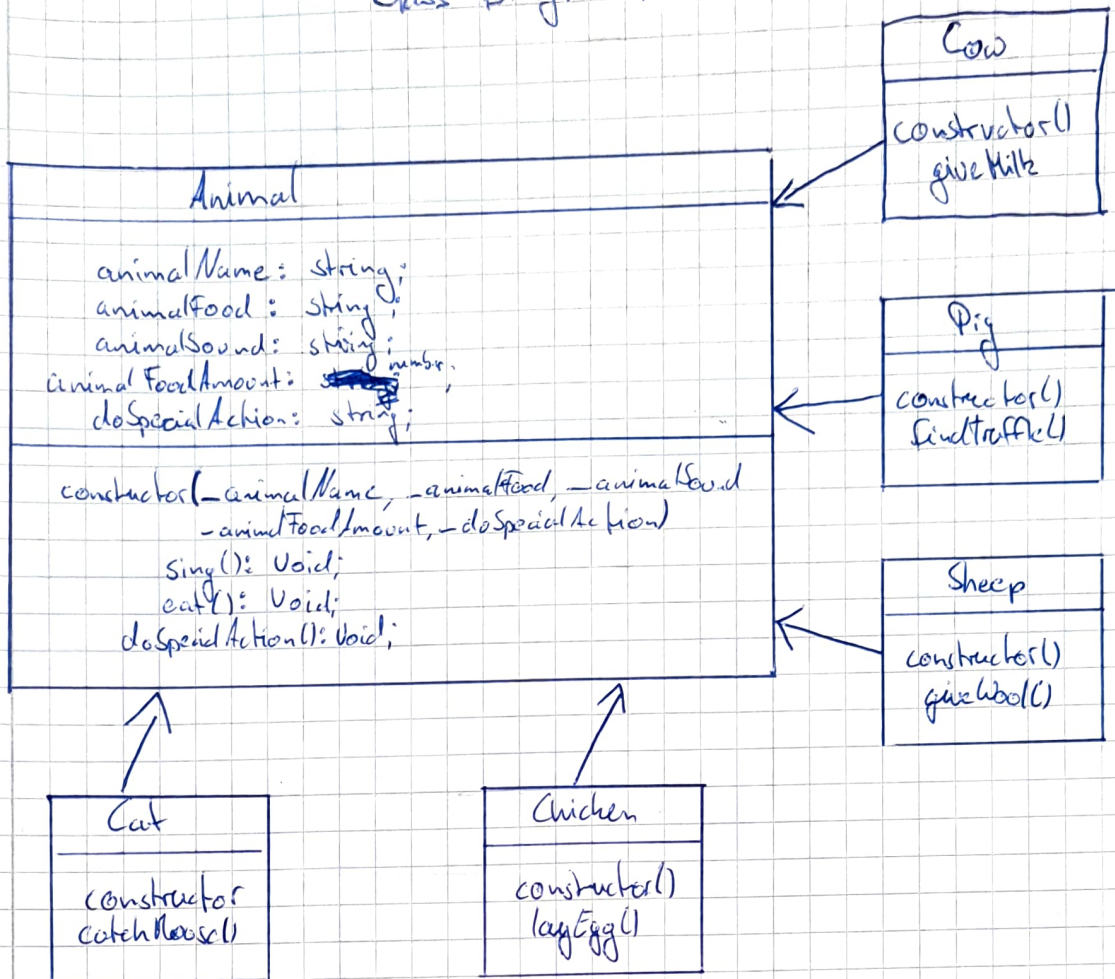 Class
Cow
constructor()
giveMilk
Animal
animalName: string;
animalFood: string;
animalSound: string;
animalFoodAmount: number;
doSpecialAction: string;
constructor(_animalName, _animalFood, _animalSound
_animalFoodAmount, _doSpecialAction)
sing(): Void;
eat(): Void;
doSpecialAction(): Void;
Pig
constructor()
findtruffle()
Sheep
constructor()
giveWool()
Cat
constructor
catchMouse()
Chicken
constructor()
layEgg()